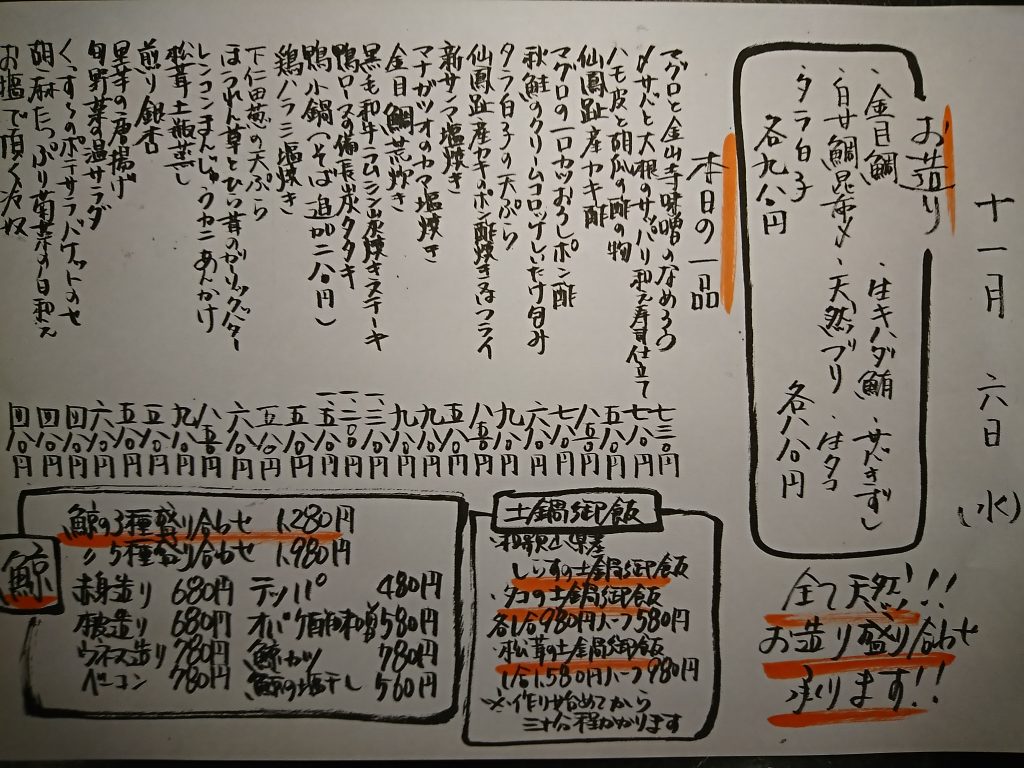 十一月 六日 (水)
お造り
・金目鯛 ・生キハダ鮪 ・サバきずし
・白甘鯛昆布〆 ・天然ブリ ・生タコ
・タラ白子 各八八〇円
各九八〇円
全て天然!!!
お造り盛り合わせ
承ります!!
本日の一品
マグロと金山寺味噌のなめろう 七三〇円
〆サバと大根のサッパリ和え寿司仕立て 七八〇円
ハモ皮と胡瓜の酢の物
仙鳳趾産カキ酢
マグロの一口カツおろしポン酢
秋鮭のクリームコロッケしいたけ包み
タラ白子の天ぷら
仙鳳趾産カキのポン酢焼き
新サンマ塩焼き
マナガツオのカマ塩焼き
金目鯛荒炊き
黒毛和牛ラムシン炭焼きステーキ
鴨ロース備長炭タタキ
鴨小鍋(そば追加二八〇円)
鶏ハラミ塩焼き
下仁田葱の天ぷら
ほうれん草とひら茸のガーリックバター
レンコンまんじゅうカニあんかけ
松茸土瓶蒸し
煎り銀杏
里芋の唐揚げ
旬野菜の温サラダ
ポテサラバケットのせ 四八〇円
胡麻たっぷり菊菜の白和え 四八〇円
お塩で頂く冷奴 四八〇円
土鍋御飯
・和歌山県産
しらすの土鍋御飯
・タコの土鍋御飯
各1合980円ハーフ580円
・松茸の土鍋御飯
1合1.580円ハーフ980円
※作り始めてから
三十分程かかります
鯨
鯨の3種盛り合わせ 1.280円
〃5種盛り合わせ 1.980円
赤身造り 680円 テッパ 480円
本皮造り 680円 オバケ酢味噌 580円
ウネス造り 780円 鯨カツ 780円
ベーコン 780円 鯨の塩干し 560円